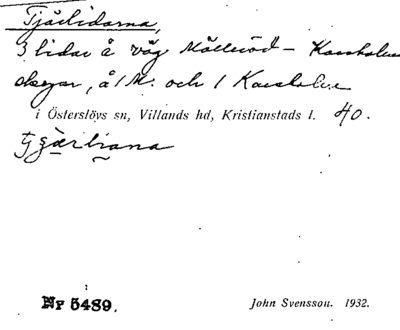 Tjärlidarna,
3 lidar å väg Mölleröd - Karsholm
å 1 M. och 1 Karsholm
i Österslövs sn, Villands hd, Kristianstads l. 40.
Nr 5489. John Svensson. 1932.